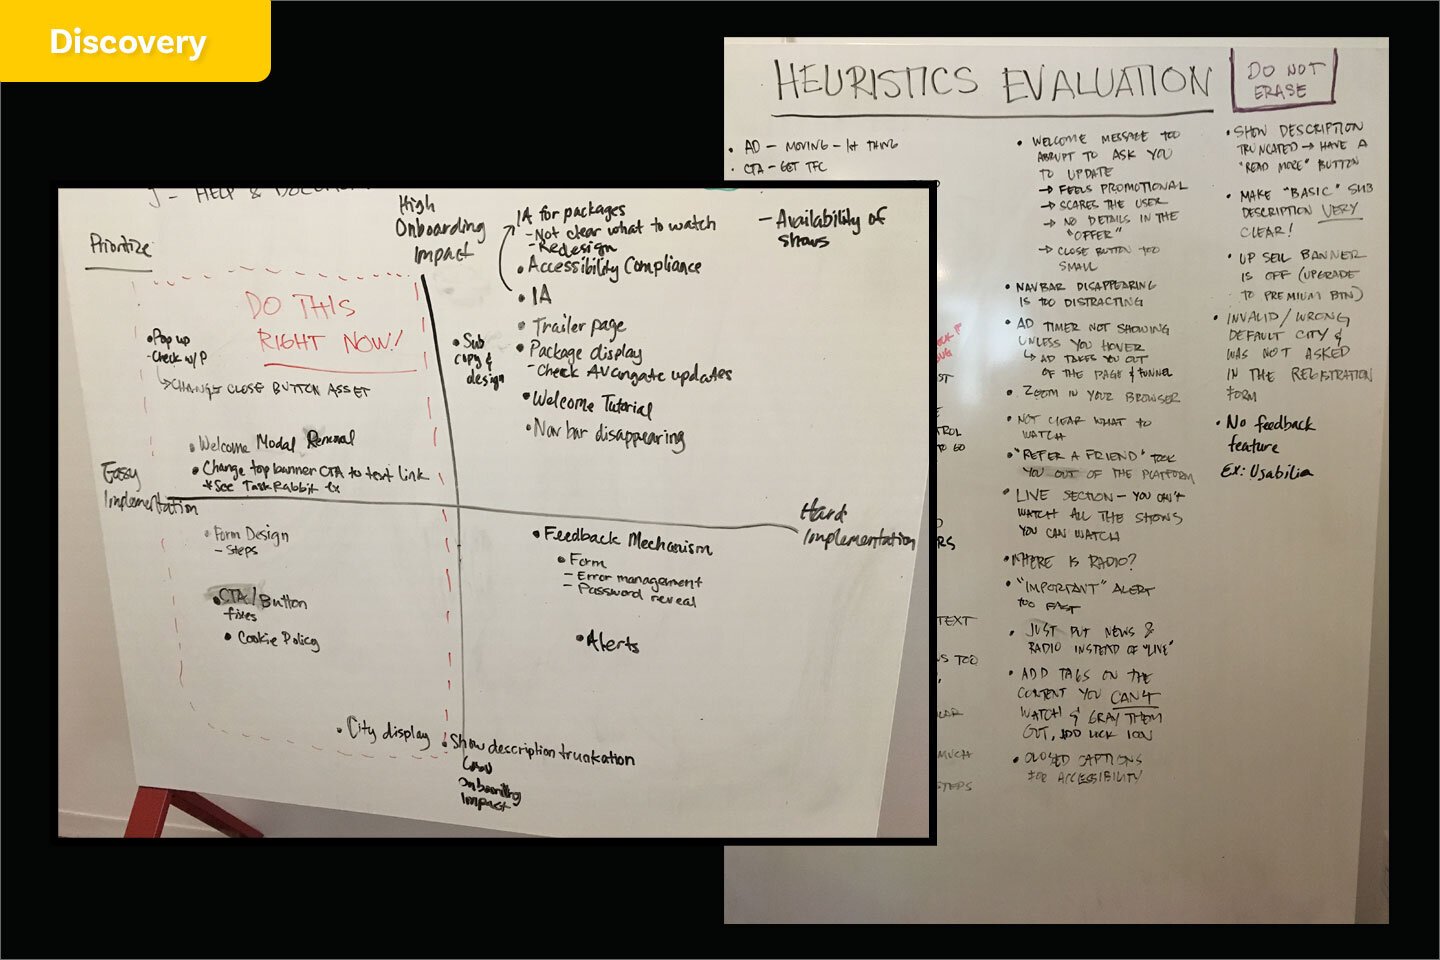 Discovery
J - HELP &
Prioritize
High
Onboarding
Impact
DO THIS
RIGHT NOW!
• Pop up
- Check w/P
CHANGE CLOSE BUTTON ASSET
• Welcome Modal Removal
• Change top banner CTA to text link
*See TaskRabbit ex
Easy
Implementation
IA for packages
- Not clear what to watch
- Redesign
• Accessibility Compliance
• IA
• Trailer page
• Package display
- Check Avangate updates
• Welcome Tutorial
• Nav bar disappearing
• Sub
copy &
design
- Availability of
shows
Hard
Implementation
• Form Design
- Steps
• CTA/Button
fixes
• Cookie Policy
• City display
• Feedback Mechanism
• Form
- Error management
- Password reveal
• Alerts
• Show description trunkation
Low
Onboarding
Impact
HEURISTICS EVALUATION
DO NOT
ERASE
• AD - MOVING - 1st THING
• CTA - GET TFC
ST
TROL
TO GO
RS
TEXT
TOO
LAR
MUCH
STEPS
• WELCOME MESSAGE TOO
ABRUPT TO ASK YOU
TO UPDATE
→ FEELS PROMOTIONAL
→ SCARES THE USER
→ NO DETAILS IN THE
"OFFER"
→ CLOSE BUTTON TOO
SMALL
• NAVBAR DISAPPEARING
IS TOO DISTRACTING
• AD TIMER NOT SHOWING
UNLESS YOU HOVER
↳ AD TAKES YOU OUT
OF THE PAGE & FUNNEL
• ZOOM IN YOUR BROWSER
• NOT CLEAR WHAT TO
WATCH
• "REFER A FRIEND" TOOK
YOU OUT OF THE PLATFORM
• LIVE SECTION - YOU CAN'T
WATCH ALL THE SHOWS
YOU CAN WATCH
• WHERE IS RADIO?
• "IMPORTANT" ALERT
TOO FAST
• JUST PUT NEWS &
RADIO INSTEAD OF "LIVE"
• ADD TAGS ON THE
CONTENT YOU CAN'T
WATCH & GRAY THEM
OUT, ADD LOCK ICON
• CLOSED CAPTIONS
FOR ACCESSIBILITY
• SHOW DESCRIPTION
TRUNCATED → HAVE A
"READ MORE" BUTTON
• MAKE "BASIC" SUB
DESCRIPTION VERY
CLEAR!
• UP SELL BANNER
IS OFF (UPGRADE
TO PREMIUM BTN)
• INVALID/WRONG
DEFAULT CITY &
WAS NOT ASKED
IN THE REGISTRATION
FORM
• No feedback
feature
Ex: Usabilia